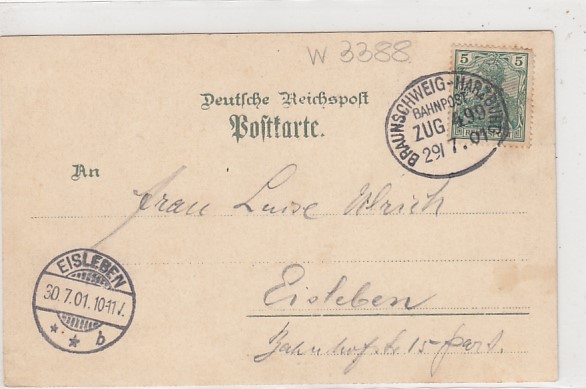 W 3388
5 5
Deutsche Reichspost
Postkarte.
BRAUNSCHWEIG-HARZBURG
BAHNPOST
ZUG 499
29/7.01
An
Frau Luise Ulrich
EISLEBEN
30.7.01.10-11V.
* * b
Eisleben
Bahnhofstr. 15 part.